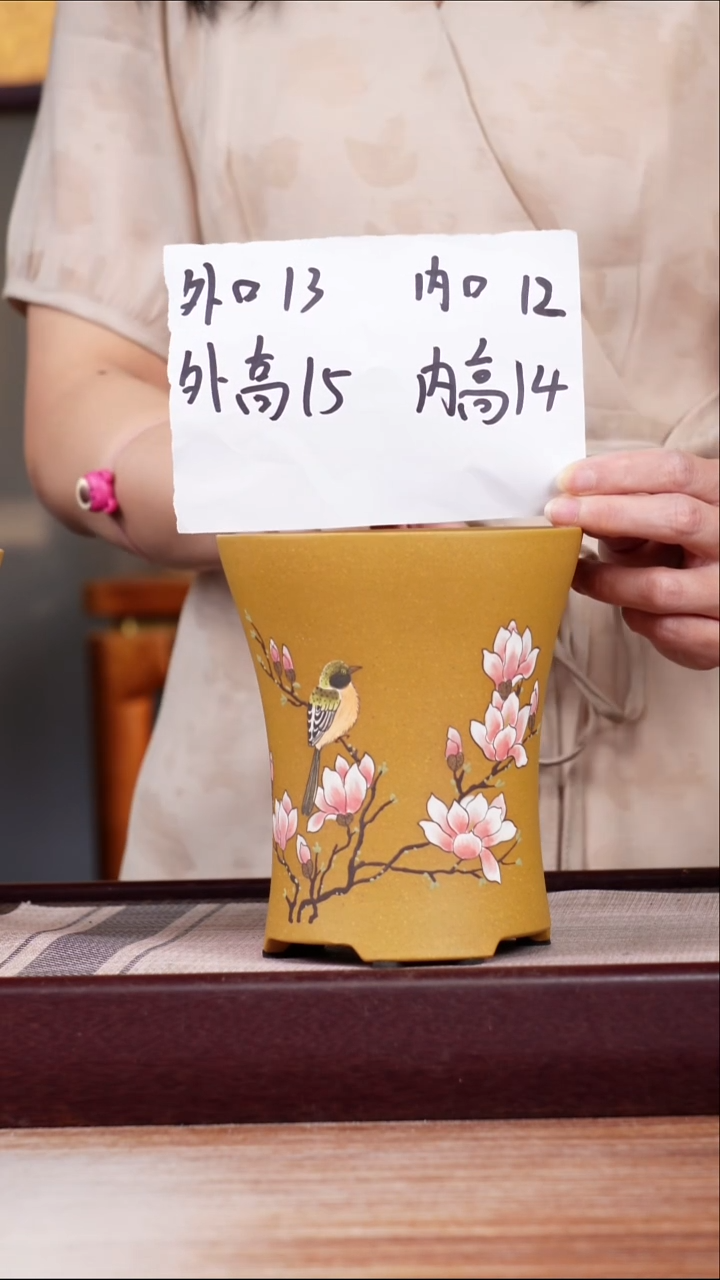 外口13 内口12
外高15 内高14